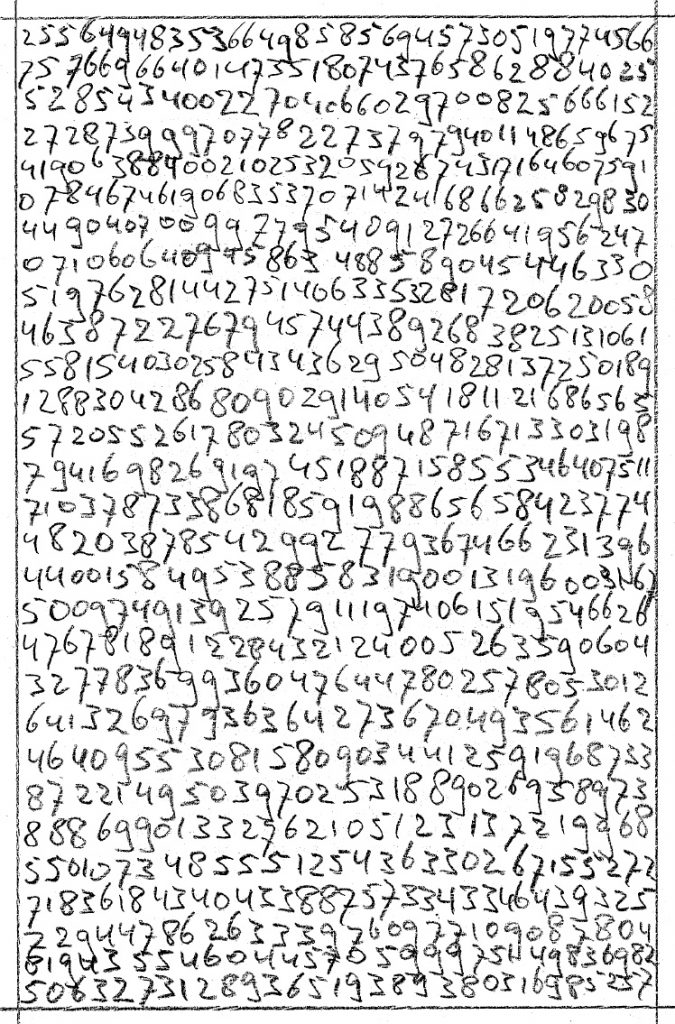 255649483535366498585694573051977 4566
757669664014735518074376586288402 5
52854340022704066029700825666152
272873999707782273797940114865967 5
4190638840021025320542674317164607591
07846746190683537071424168662582983 0
44904070099779540912726641956247
07106064099586348858904544 6330
519762814427514063353281720620058
46387227679457443892683825131061
558154030258434362950482813725018 9
128830428680902914054181121686563
572055261780324509487167133031 98
794169826919745188715855346407511
710378733868185919886565842377 4
48203878542999277936746623 1396
4400158495388583190013196003167
500974913925791119740615195 46626
476781891228432124005263590604
32778369936047644780257805 3012
641326979363642736704935 61462
4640955308158090344125919687 33
87221495039702531889026958973
888699013327621051231372 19968
5501073485555125436330267155272
718361843404338875733433464393 25
729447862633397609771090878 04
6194355546044570599975114983698 2
506327312893651938938031698525 7